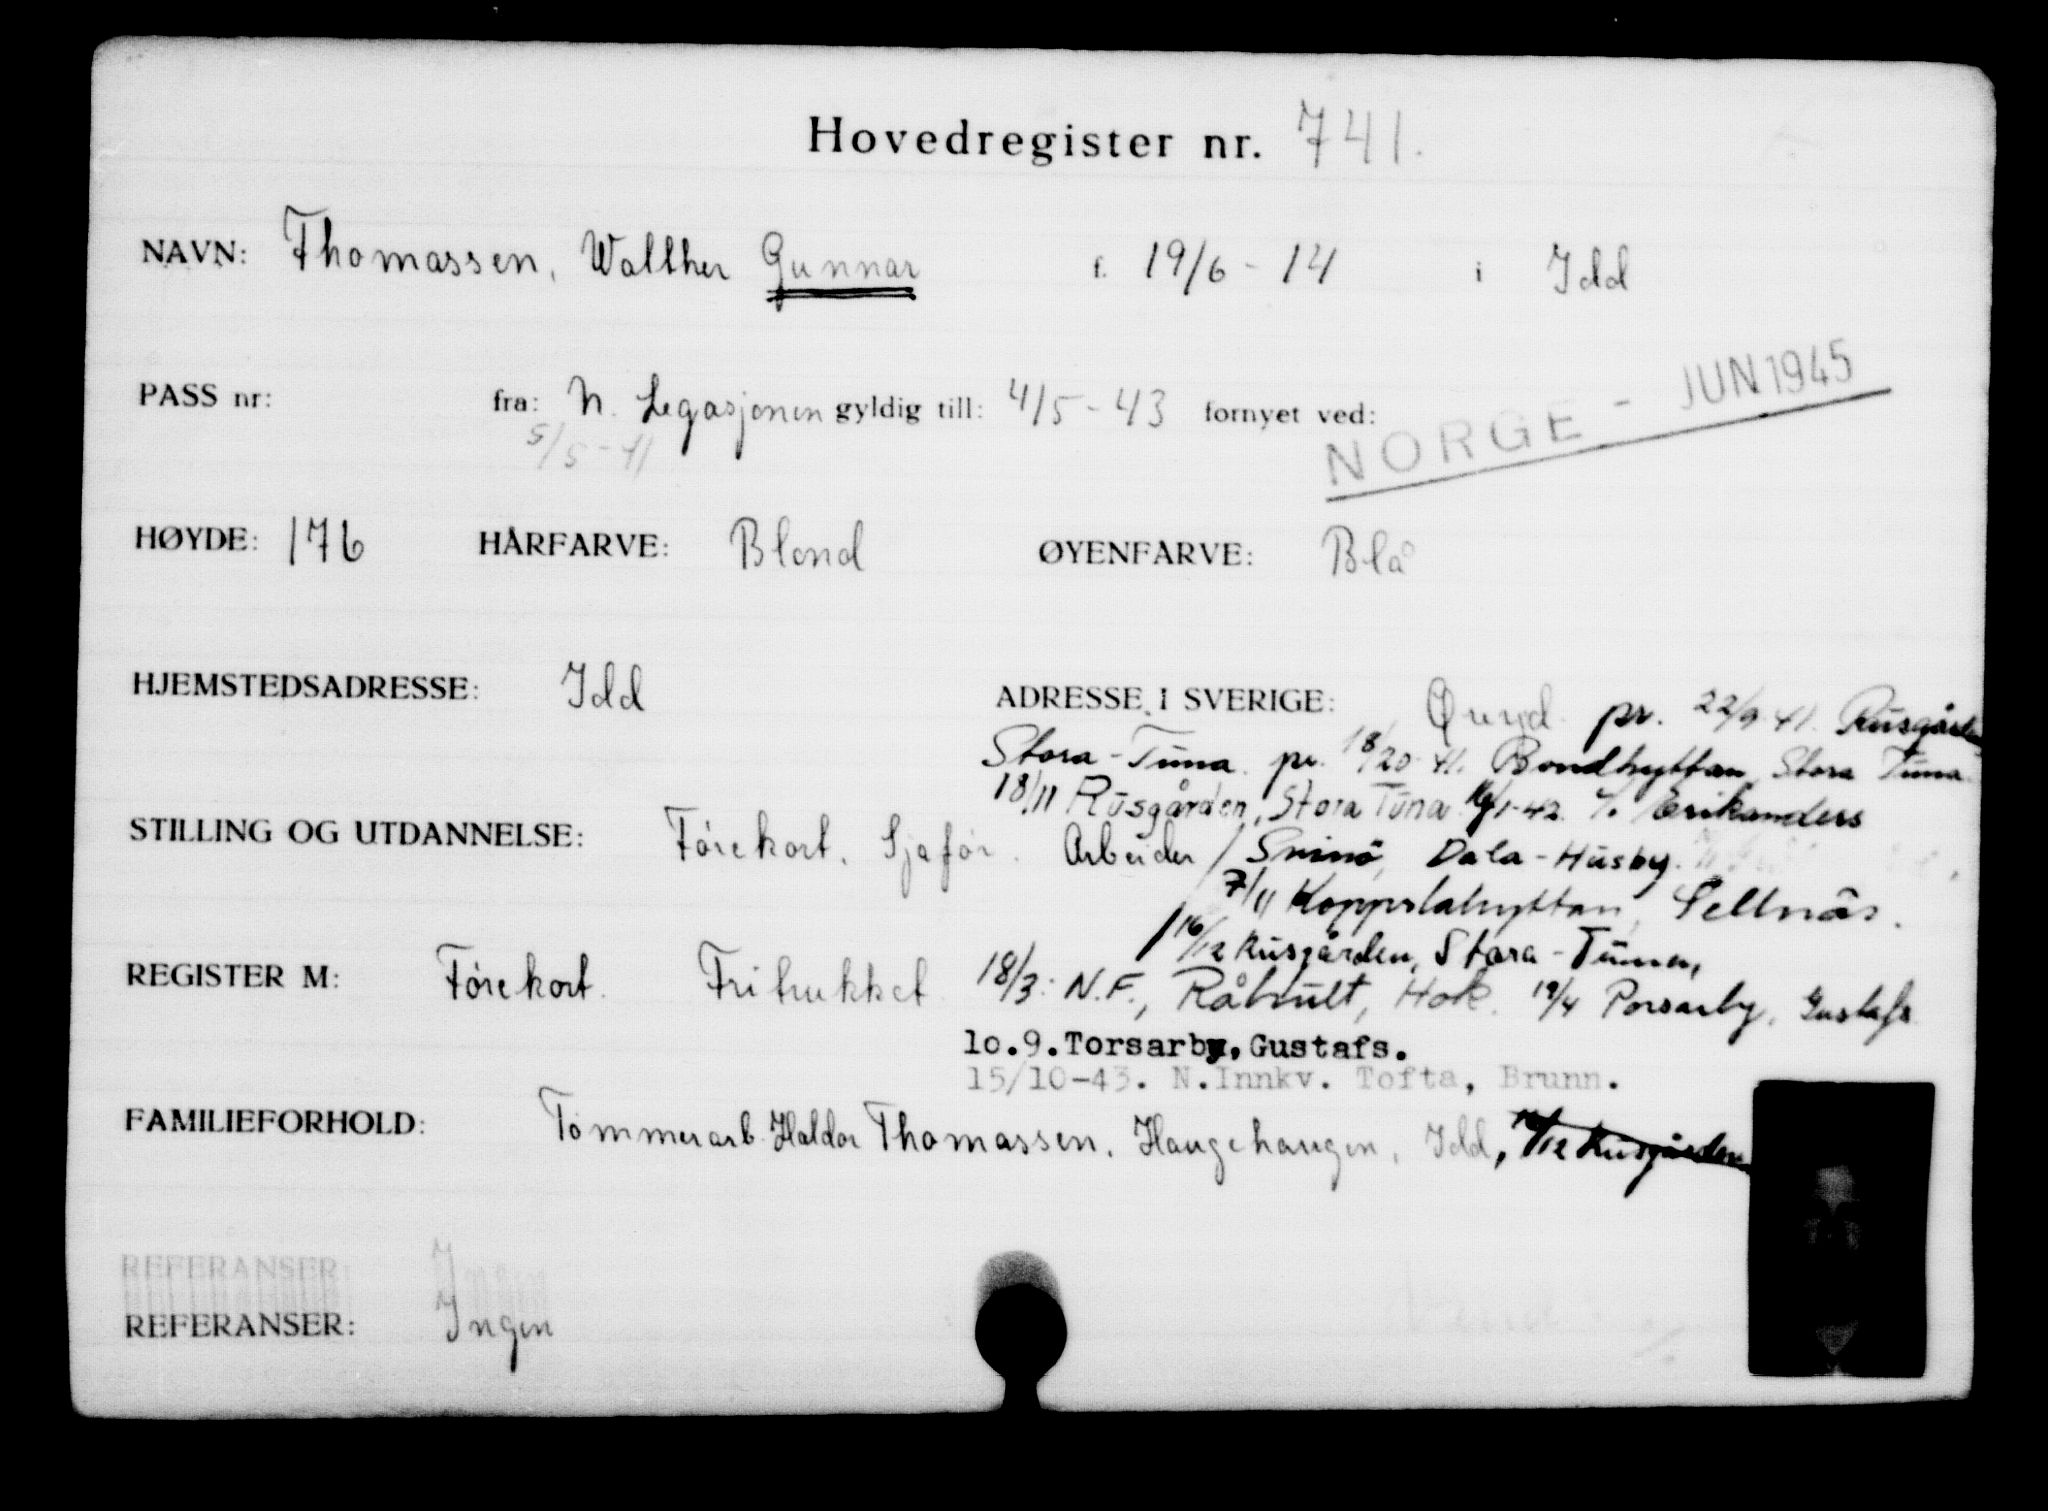 Hovedregister nr. 741.
NAVN: Thomassen, Walther Gunnar f. 19/6 - 14 i Idd
PASS nr: fra: N. Legasjonen gyldig till: 4/5 - 43 fornyet ved:
5/5 - 41
NORGE - JUN 1945
HØYDE: 176 HÅRFARVE: Blond ØYENFARVE: Blå
HJEMSTEDSADRESSE: Idd ADRESSE I SVERIGE: Øreryd pr. 22/9 41. Rusgården
Stora-Tuna pr. 18/20 41. Bondhyttan, Stora Tuna
18/11 Rusgården, Stora Tuna 42 Erikanders
STILLING OG UTDANNELSE: Førekort. Sjafør. Arbeider / Svinö, Dala-Husby.
7/11 Kopparlahyttan, Sellnäs.
16/12 Rusgården, Stora-Tuna,
REGISTER M: Førekort. Fritrukket 18/3: N.F., Råhult, Hok. 19/4 Porsarby, Gustafs
10.9. Torsarby, Gustafs.
15/10-43. N.Innkv. Tofta, Brunn.
FAMILIEFORHOLD: Tømmerarb. Haldor Thomassen, Haugehaugen, Idd, 16/12 Rusgården
REFERANSER: Ingen
REFERANSER: Ingen